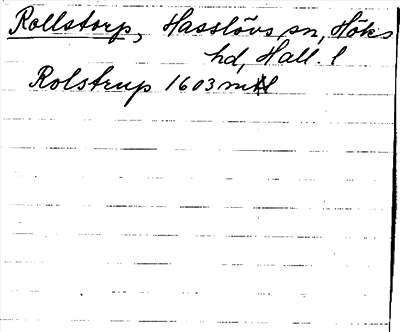 Rollstorp, Hasslövs sn, Höks
hd, Hall. l
Rolstrup 1603 mtl